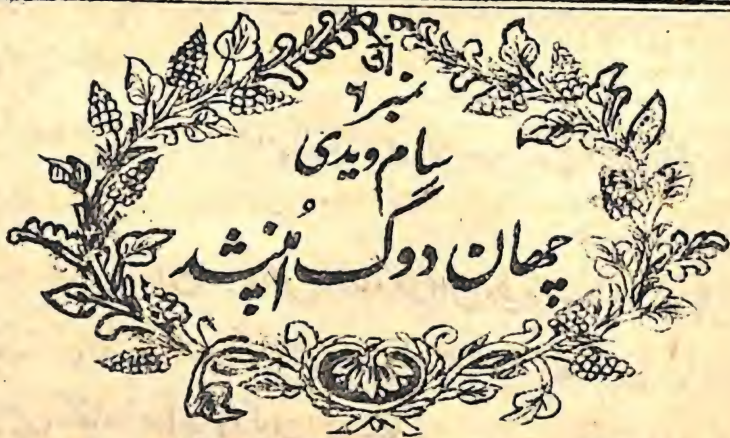 نمبر ۶
سام ویدی
چھان دوگ اُپنشد